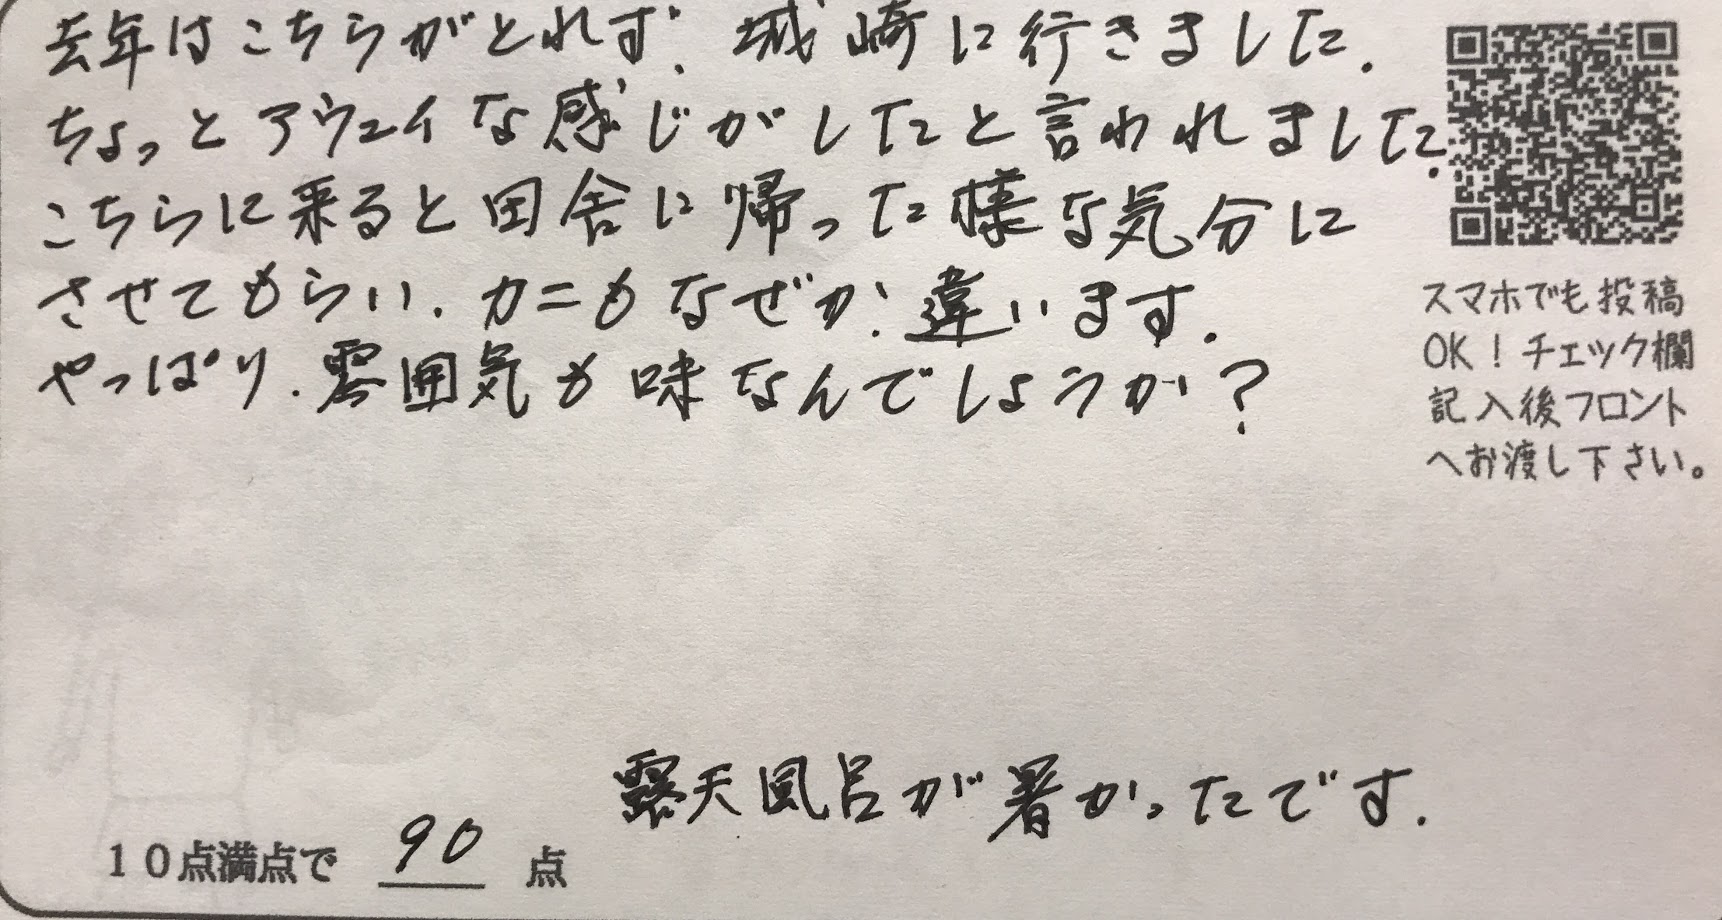 去年はこちらがとれず、城崎に行きました。
ちょっとアウェイな感じがしたと言われました。
こちらに来ると田舎に帰った様な気分に
させてもらい、カニもなぜか、違います。
やっぱり、雰囲気も味なんでしょうか?
スマホでも投稿
OK!チェック欄
記入後フロント
へお渡し下さい。
露天風呂が暑かったです。
10点満点で 90 点